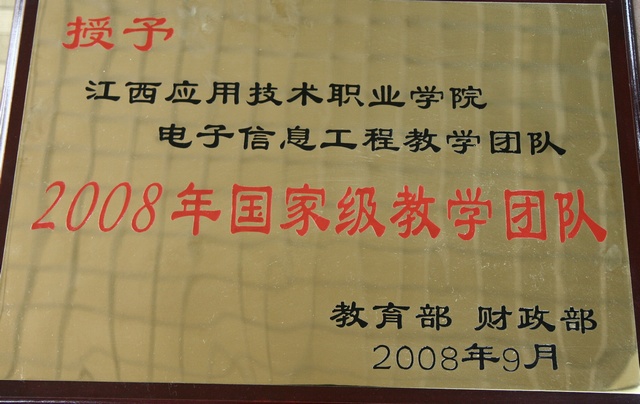 授予
江西应用技术职业学院
电子信息工程教学团队
2008年国家级教学团队
教育部 财政部
2008年9月